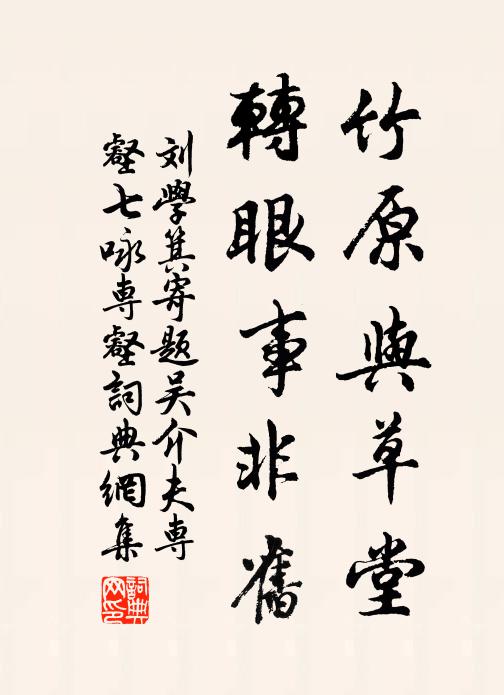 竹原與草堂
轉眼事非舊
刘學箕寄題吴介夫専
壑七咏専壑詞典網集
詞典网印